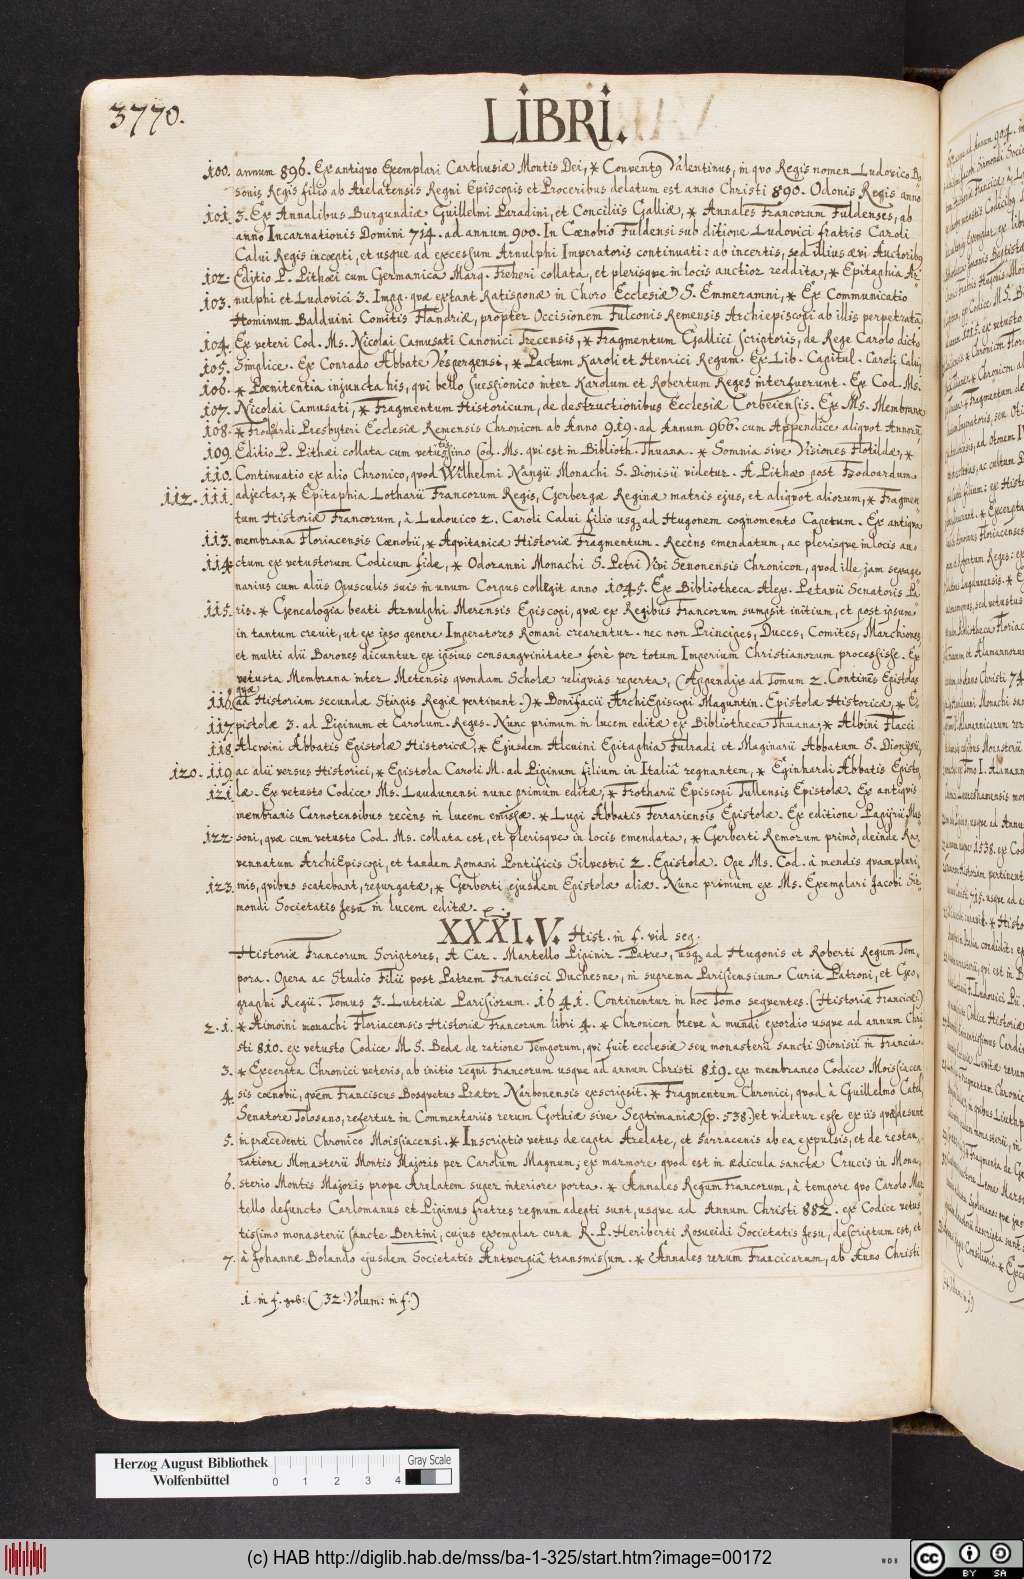 3770.
LIBRI.
100. annum 896. Ex antiquo Exemplari Carthusiæ Montis Dei, * Conventus Valentinus, in quo Regis nomen Ludovico Bo-
sonis Regis filio ab Arelatensis Regni Episcopis et Proceribus delatum est anno Christi 890. Odonis Regis anno
101. 3. Ex Annalibus Burgundiæ Guillelmi Paradini, et Conciliis Galliæ, * Annales Francorum Fuldenses, ab
anno Incarnationis Domini 714. ad annum 900. In Cœnobio Fuldensi sub ditione Ludovici fratris Caroli
Calui Regis incœpti, et usque ad excessum Arnulphi Imperatoris continuati: ab incertis, sed illius ævi Auctoribus
102. Editio P. Pithœi cum Germanica Marq. Freheri collata, et plerisque in locis auctior reddita, * Epitaphia Ar-
103. nulphi et Ludovici 3. Impp. quæ extant Ratisponæ in Choro Ecclesiæ S. Emmerammi, * Ex Communicatio
Hominum Balduini Comitis Flandriæ, propter Occisionem Fulconis Remensis Archiepiscopi ab illis perpetratam
104. Ex veteri Cod. Ms. Nicolai Camusati Canonici Trecensis, * Fragmentum Gallici scriptoris, de Rege Carolo dicto
105. Simplice. Ex Conrado Abbate Vespergensi, * Pactum Karoli et Henrici Regum. Ex Lib. Capitul. Caroli Calui,
106. * Pœnitentia injuncta his, qui bello suessionico inter Karolum et Robertum Reges interfuerunt. Ex Cod. Ms.
107. Nicolai Camusati, * Fragmentum Historicum, de destructionibus Ecclesiæ Corbeiensis. Ex Ms. Membrana
108. * Frodoardi Presbyteri Ecclesiæ Remensis Chronicon ab Anno 919. ad Annum 966. cum Appendice aliquot Annorum,
109. Editio P. Pithœi collata cum vetustissimo Cod. Ms. qui est in Biblioth. Thuana. * Somnia sive Visiones Flotildæ, *
110. Continuatio ex alio Chronico, quod Wilhelmi Nangii Monachi S. Dionisii videtur. A Pithæo post Frodoardum
112. 111. adjecta, * Epitaphia Lotharii Francorum Regis, Gerbergæ Reginæ matris ejus, et aliquot aliorum, * Fragmen-
tum Historiæ Francorum, à Ludouico 2. Caroli Calui filio usque ad Hugonem cognomento Capetum. Ex antiqua
113. membrana Floriacensis Cœnobii, * Aquitanicæ Historiæ Fragmentum. Recèns emendatum, ac plerisque in locis au-
114 ctum ex vetustorum Codicum fide, * Odoranni Monachi S. Petri Vivi Senonensis Chronicon, quod ille jam sexage
narius cum aliis Opusculis suis in unum Corpus collegit anno 1045. Ex Bibliotheca Alex. Petavii Senatoris Pa-
115. ris. * Genealogia beati Arnulphi Metensis Episcopi, quæ ex Regibus Francorum sumpsit initium, et post ipsum
in tantum creuit, ut ex ipso genere Imperatores Romani crearentur. nec non Principes, Duces, Comites, Marchiones,
et multi alii Barones dicuntur ex ipsius consanguinitate ferè per totum Imperium Christianorum processisse. Ex
vetusta Membrana inter Metensis quondam Scholæ reliquias reperta, (Appendix ad Tomum 2. Continens Epistolas
quæ
116 ad Historiam secundæ Stirpis Regiæ pertinent.) * Bonifacii ArchiEpiscopi Maguntin. Epistola Historica, * E-
117. pistolæ 3. ad Pipinum et Carolum. Reges. Nunc primum in lucem editæ ex Bibliotheca Thuana, * Albini Flacci
118. Alcwini Abbatis Epistolæ Historicæ, * Ejusdem Alcuini Epitaphia Fulradi et Maginarii Abbatum S. Dionysii,
120. 119. ac alii versus Historici, * Epistola Caroli M. ad Pipinum filium in Italiâ regnantem, * Eginhardi Abbatis Episto-
121 læ. Ex vetusto Codice Ms. Laudunensi nunc primum editæ, * Frotharii Episcopi Tullensis Epistolæ. Ex antiquis
membranis Carnotensibus recèns in lucem emissæ. * Lupi Abbatis Ferrariensis Epistolæ. Ex editione Papirii Mas-
122. soni, quæ cum vetusto Cod. Ms. collata est, et plerisque in locis emendata, * Gerberti Remorum primò, deinde Ra-
vennatum ArchiEpiscopi, et tandem Romani Pontificis Silvestri 2. Epistolæ. Ope Ms. Cod. à mendis quam pluri-
123. mis, quibus scatebant, repurgatæ, * Gerberti ejusdem Epistolæ aliæ. Nunc primùm ex Ms. Exemplari Jacobi Sir-
mondi Societatis Jesu in lucem editæ.
XXXI.V. Hist. in f. vid seq.
Historiæ Francorum Scriptores, A Car. Martello Pipini R. Patre, usque ad Hugonis et Roberti Regum Tem-
pora. Opera ac Studio Filii post Patrem Francisci Duchesne, in suprema Parisiensium Curia Patroni, et Geo-
graphi Regii. Tomus 3. Lutetiæ Parisiorum. 1641. Continentur in hoc Tomo sequentes. (Historiæ Francicæ:)
2. 1. * Aimoini monachi Floriacensis Historiæ Francorum libri 4. * Chronicon breve à mundi exordio usque ad annum Chri-
sti 810. ex vetusto Codice M S. Bedæ de ratione Temporum, qui fuit ecclesiæ seu monasterii sancti Dionisii in Francia.
3. * Excerpta Chronici veteris, ab initio regni Francorum usque ad annum Christi 819. ex membraneo Codice Moissiacen
4. sis cœnobii, quem Franciscus Bosquetus Prætor Narbonensis exscripsit. * Fragmentum Chronici, quod à Guillelmo Catel,
Senatore Tolosano, refertur in Commentariis rerum Gothiæ sive Septimaniæ, (p. 538.) et videtur esse ex iis quæ desunt
5. in præcedenti Chronico Moissiacensi. * Inscriptio vetus de capta Arelate, et Sarracenis ab ea expulsis, et de restau-
ratione Monasterii Montis Majoris per Carolum Magnum; ex marmore quod est in ædicula sanctæ Crucis in Mona-
6. sterio Montis Majoris prope Arelatem super interiore porta. * Annales Regum Francorum, à tempore quo Carolo Mar-
tello defuncto Carlomanus et Pipinus fratres regnum adepti sunt, usque ad Annum Christi 882. ex Codice vetus-
tissimo monasterii sancte Bertini, cujus exemplar cura R. P. Heriberti Rosweidi Societatis Jesu, descriptum est, et
7. à Johanne Bolando ejusdem Societatis Antverpiâ transmissum. * Annales rerum Francicarum, ab Anno Christi
1. in f. geb: (32. Volum: in f.)
Herzog August Bibliothek
Wolfenbüttel
0 1 2 3 4
Gray Scale
(c) HAB http://diglib.hab.de/mss/ba-1-325/start.htm?image=00172
WDB
CC BY SA